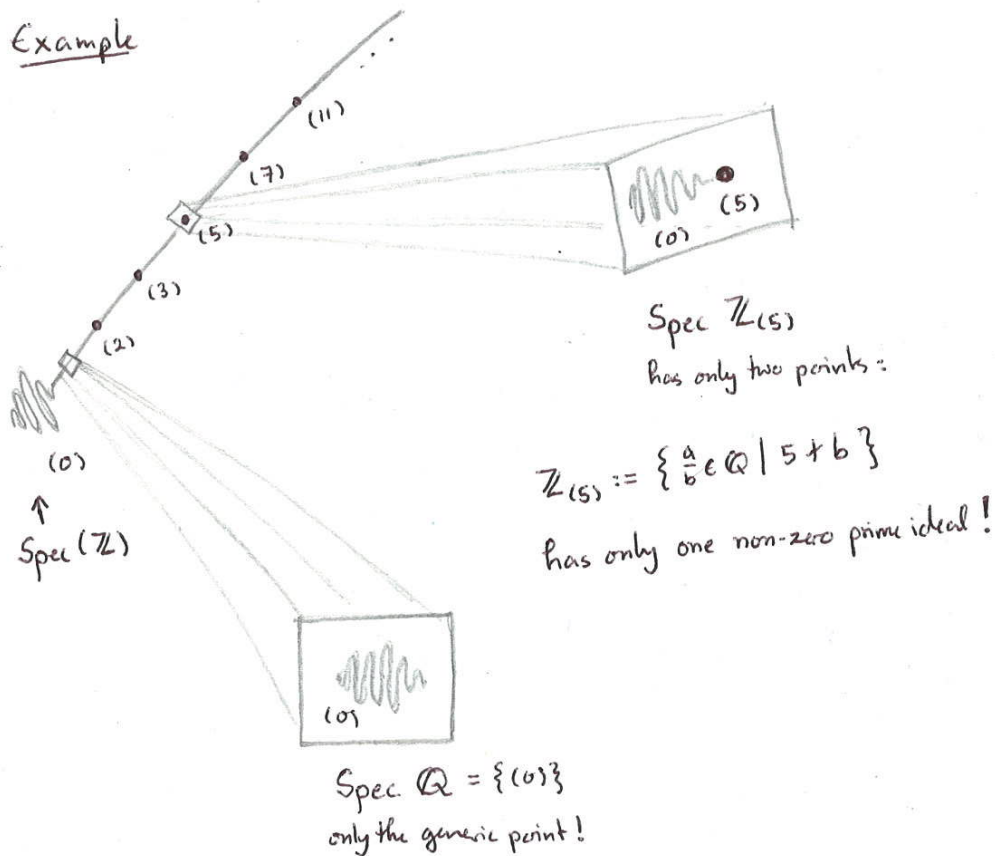 Example
(11)
(7)
(5)
(3)
(2)
(0)
↑
Spec (ℤ)
(0)
(5)
Spec ℤ(5)
has only two points:
ℤ(5) := { a/b ∈ ℚ | 5 ∤ b }
has only one non-zero prime ideal!
(0)
Spec ℚ = {(0)}
only the generic point!